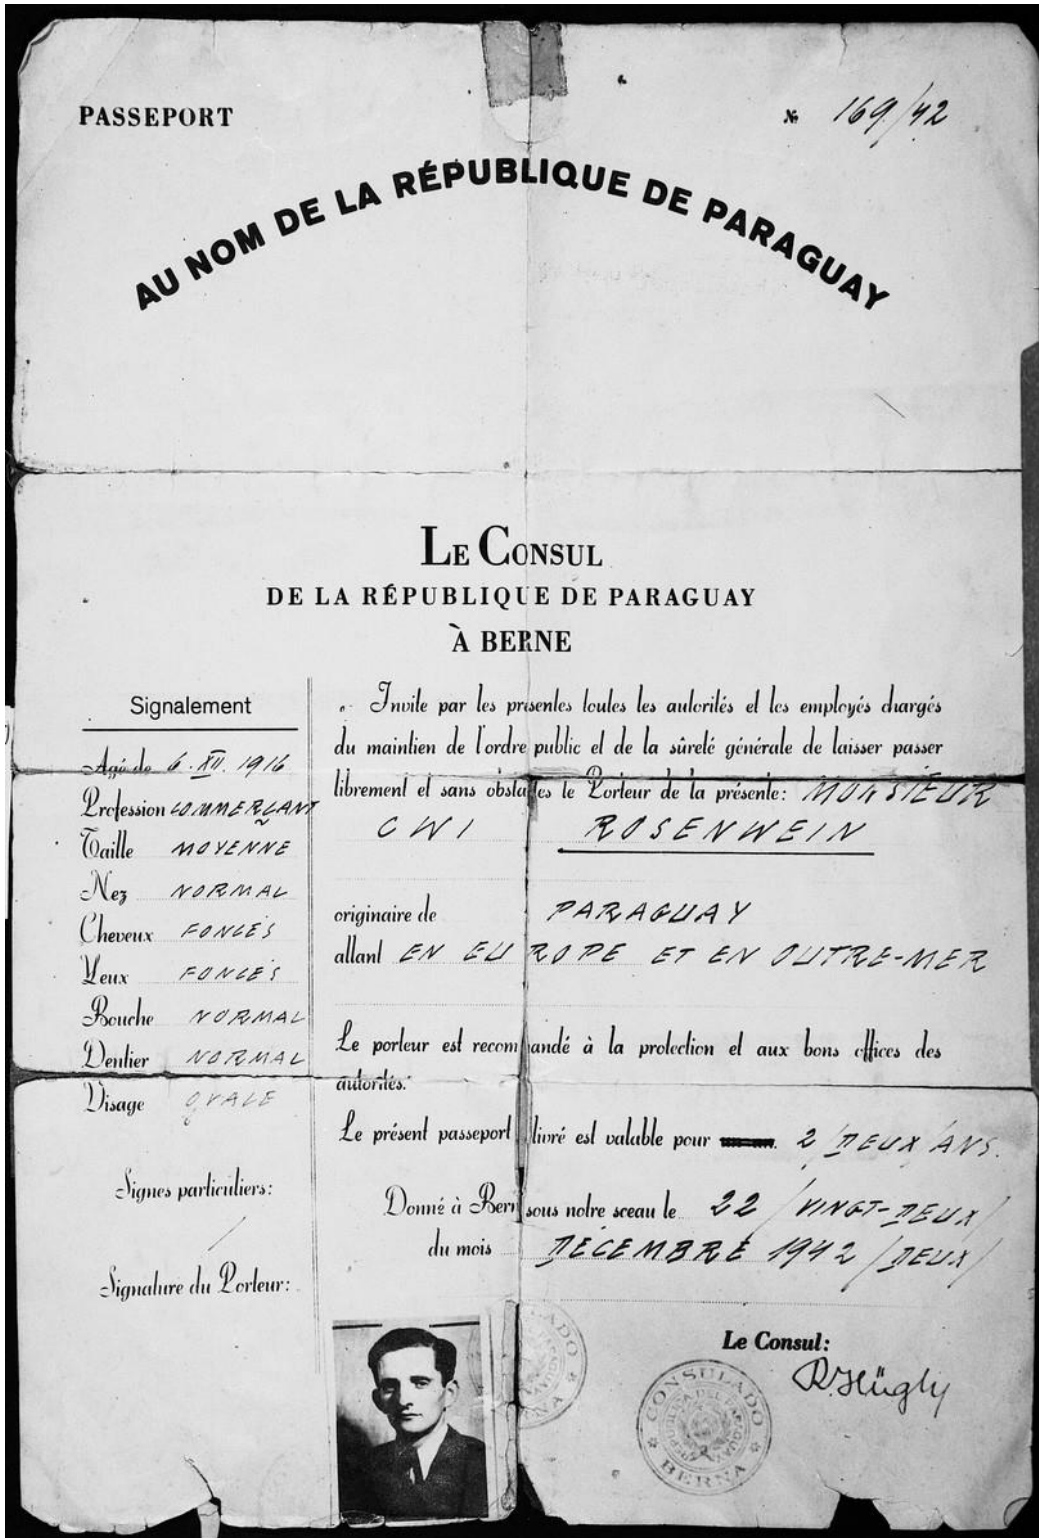 PASSEPORT
№ 169/42
AU NOM DE LA RÉPUBLIQUE DE PARAGUAY
LE CONSUL
DE LA RÉPUBLIQUE DE PARAGUAY
À BERNE
Signalement
Agé de 6. XII. 1916
Profession COMMERÇANT
Taille MOYENNE
Nez NORMAL
Cheveux FONCÉS
Yeux FONCÉS
Bouche NORMAL
Dentier NORMAL
Visage OVALE
Signes particuliers:
/
Signature du Porteur:
Invite par les présentes toutes les autorités et les employés chargés
du maintien de l'ordre public et de la sûreté générale de laisser passer
librement et sans obstacles le Porteur de la présente: MONSIEUR
CWI ROSENWEIN
originaire de PARAGUAY
allant EN EUROPE ET EN OUTRE-MER
Le porteur est recommandé à la protection et aux bons offices des
autorités.
Le présent passeport livré est valable pour 2 /DEUX/ ANS.
Donné à Berne sous notre sceau le 22 /VINGT-DEUX/
du mois DÉCEMBRE 1942 /DEUX/
Le Consul:
R. Hügly
CONSULADO
REPUBLICA DEL PARAGUAY
BERNA